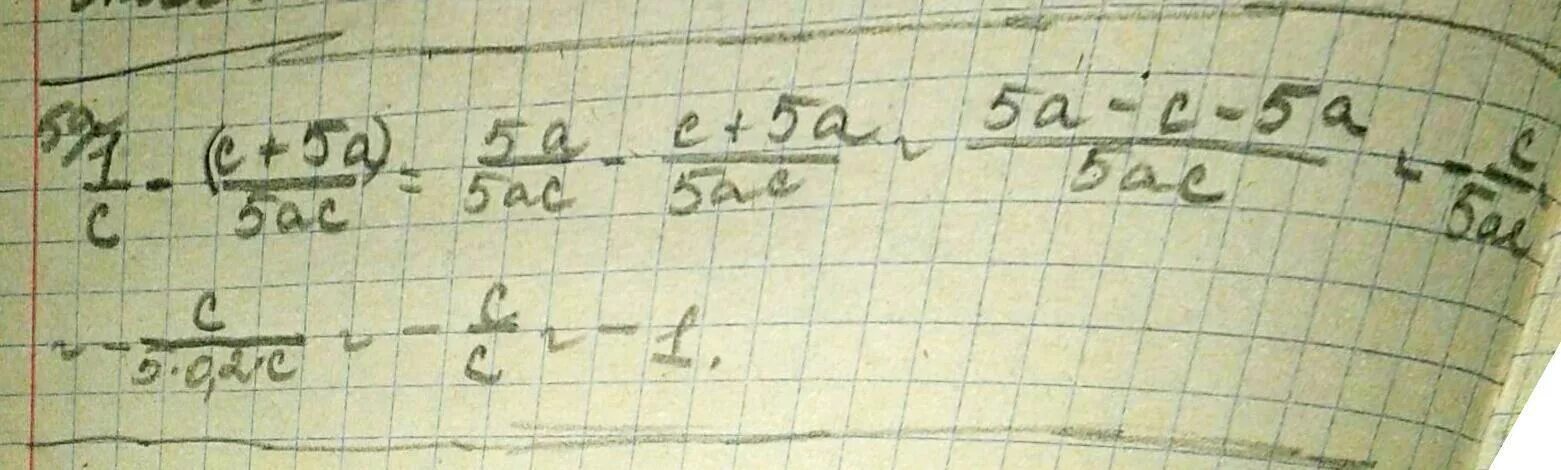 59) 1/c - (c + 5a)/5ac = 5a/5ac - c + 5a/5ac = 5a - c - 5a/5ac = - c/5ac =
= - c/5·0,2·c = - c/c = - 1.